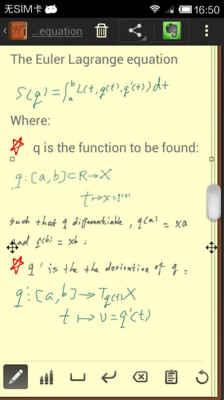 无SIM卡 16:50
...equation
The Euler Lagrange equation
S(q) = ∫ₐᵇ L(t, q(t), q'(t)) dt
Where:
q is the function to be found:
q: [a,b] ⊂ R → X
t ↦ x = q(t)
such that q differentiable, q(a) = xa
and q(b) = xb;
q' is the the derivative of q:
q': [a,b] → T_{q(t)}X
t ↦ v = q'(t)